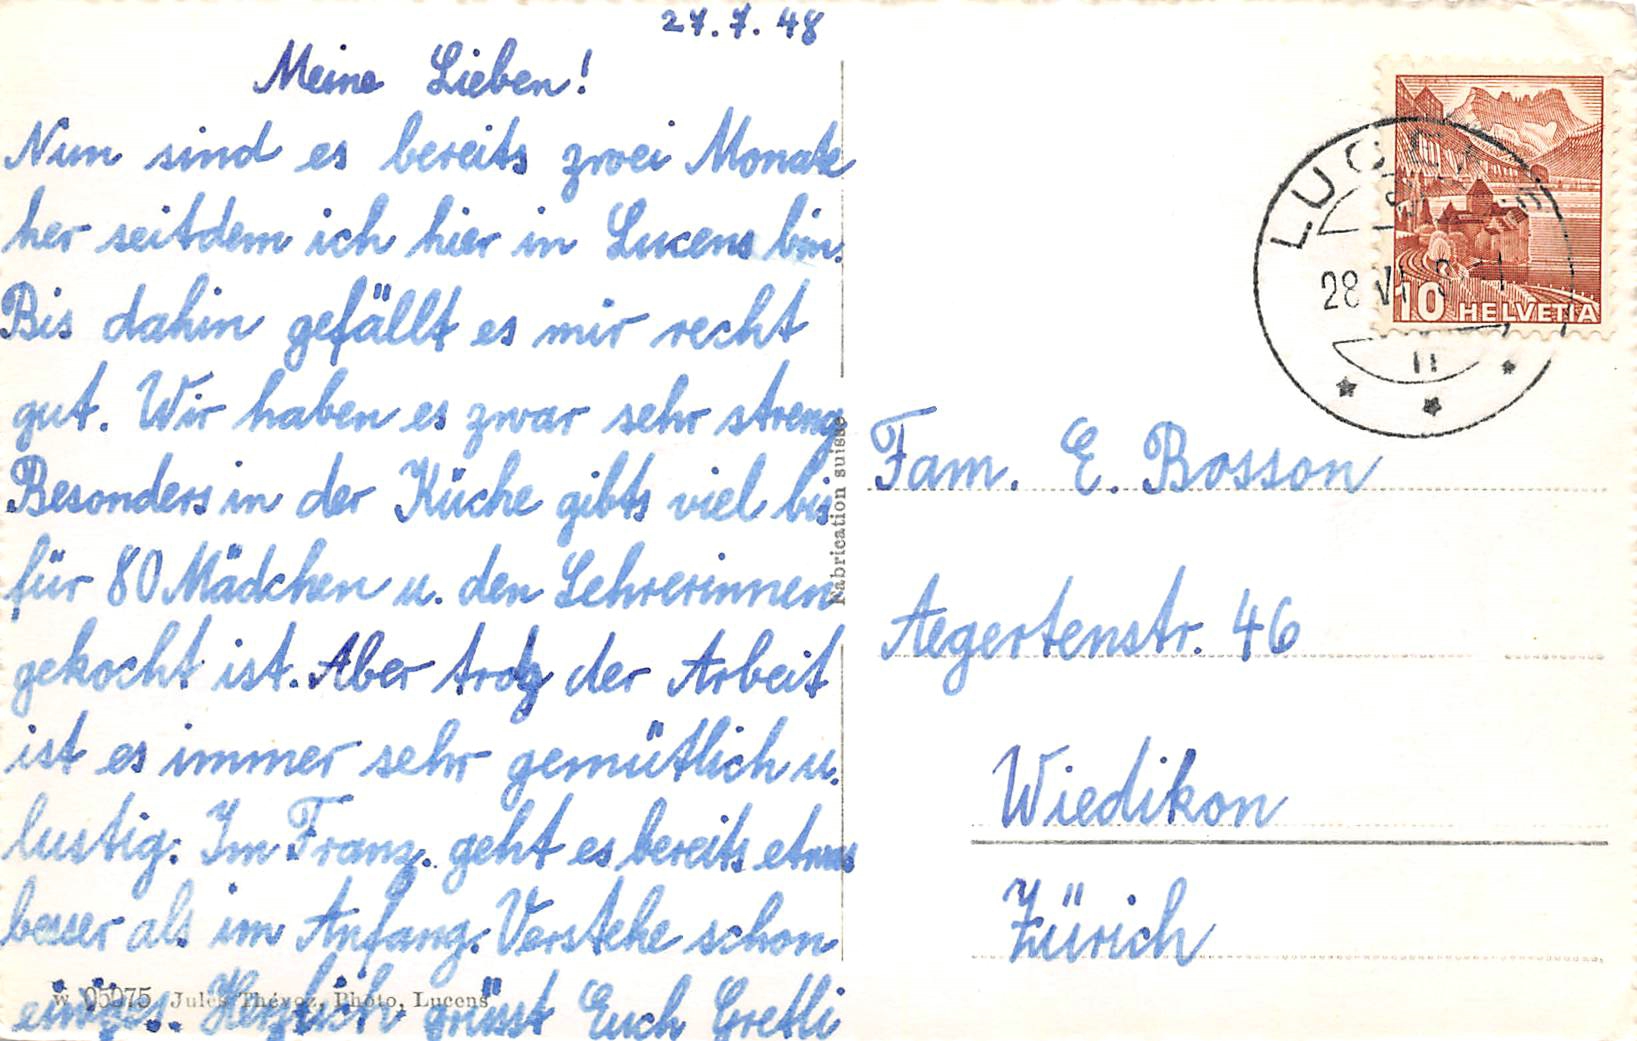 27.7.48
Meine Lieben!
Nun sind es bereits zwei Monate
her seitdem ich hier in Lucens bin.
Bis dahin gefällt es mir recht
gut. Wir haben es zwar sehr streng
Besonders in der Küche gibts viel bis
für 80 Mädchen u. den Lehrerinnen
gekocht ist. Aber trotz der Arbeit
ist es immer sehr gemütlich u.
lustig. Im Franz. geht es bereits etwas
besser als im Anfang. Verstehe schon
einiges. Herzlich grüsst Euch Gretli
W 05075 Jules Thévoz, Photo, Lucens
Fabrication suisse
LUCENS
28 VI
10 HELVETIA
Fam. E. Bosson
Aegertenstr. 46
Wiedikon
Zürich